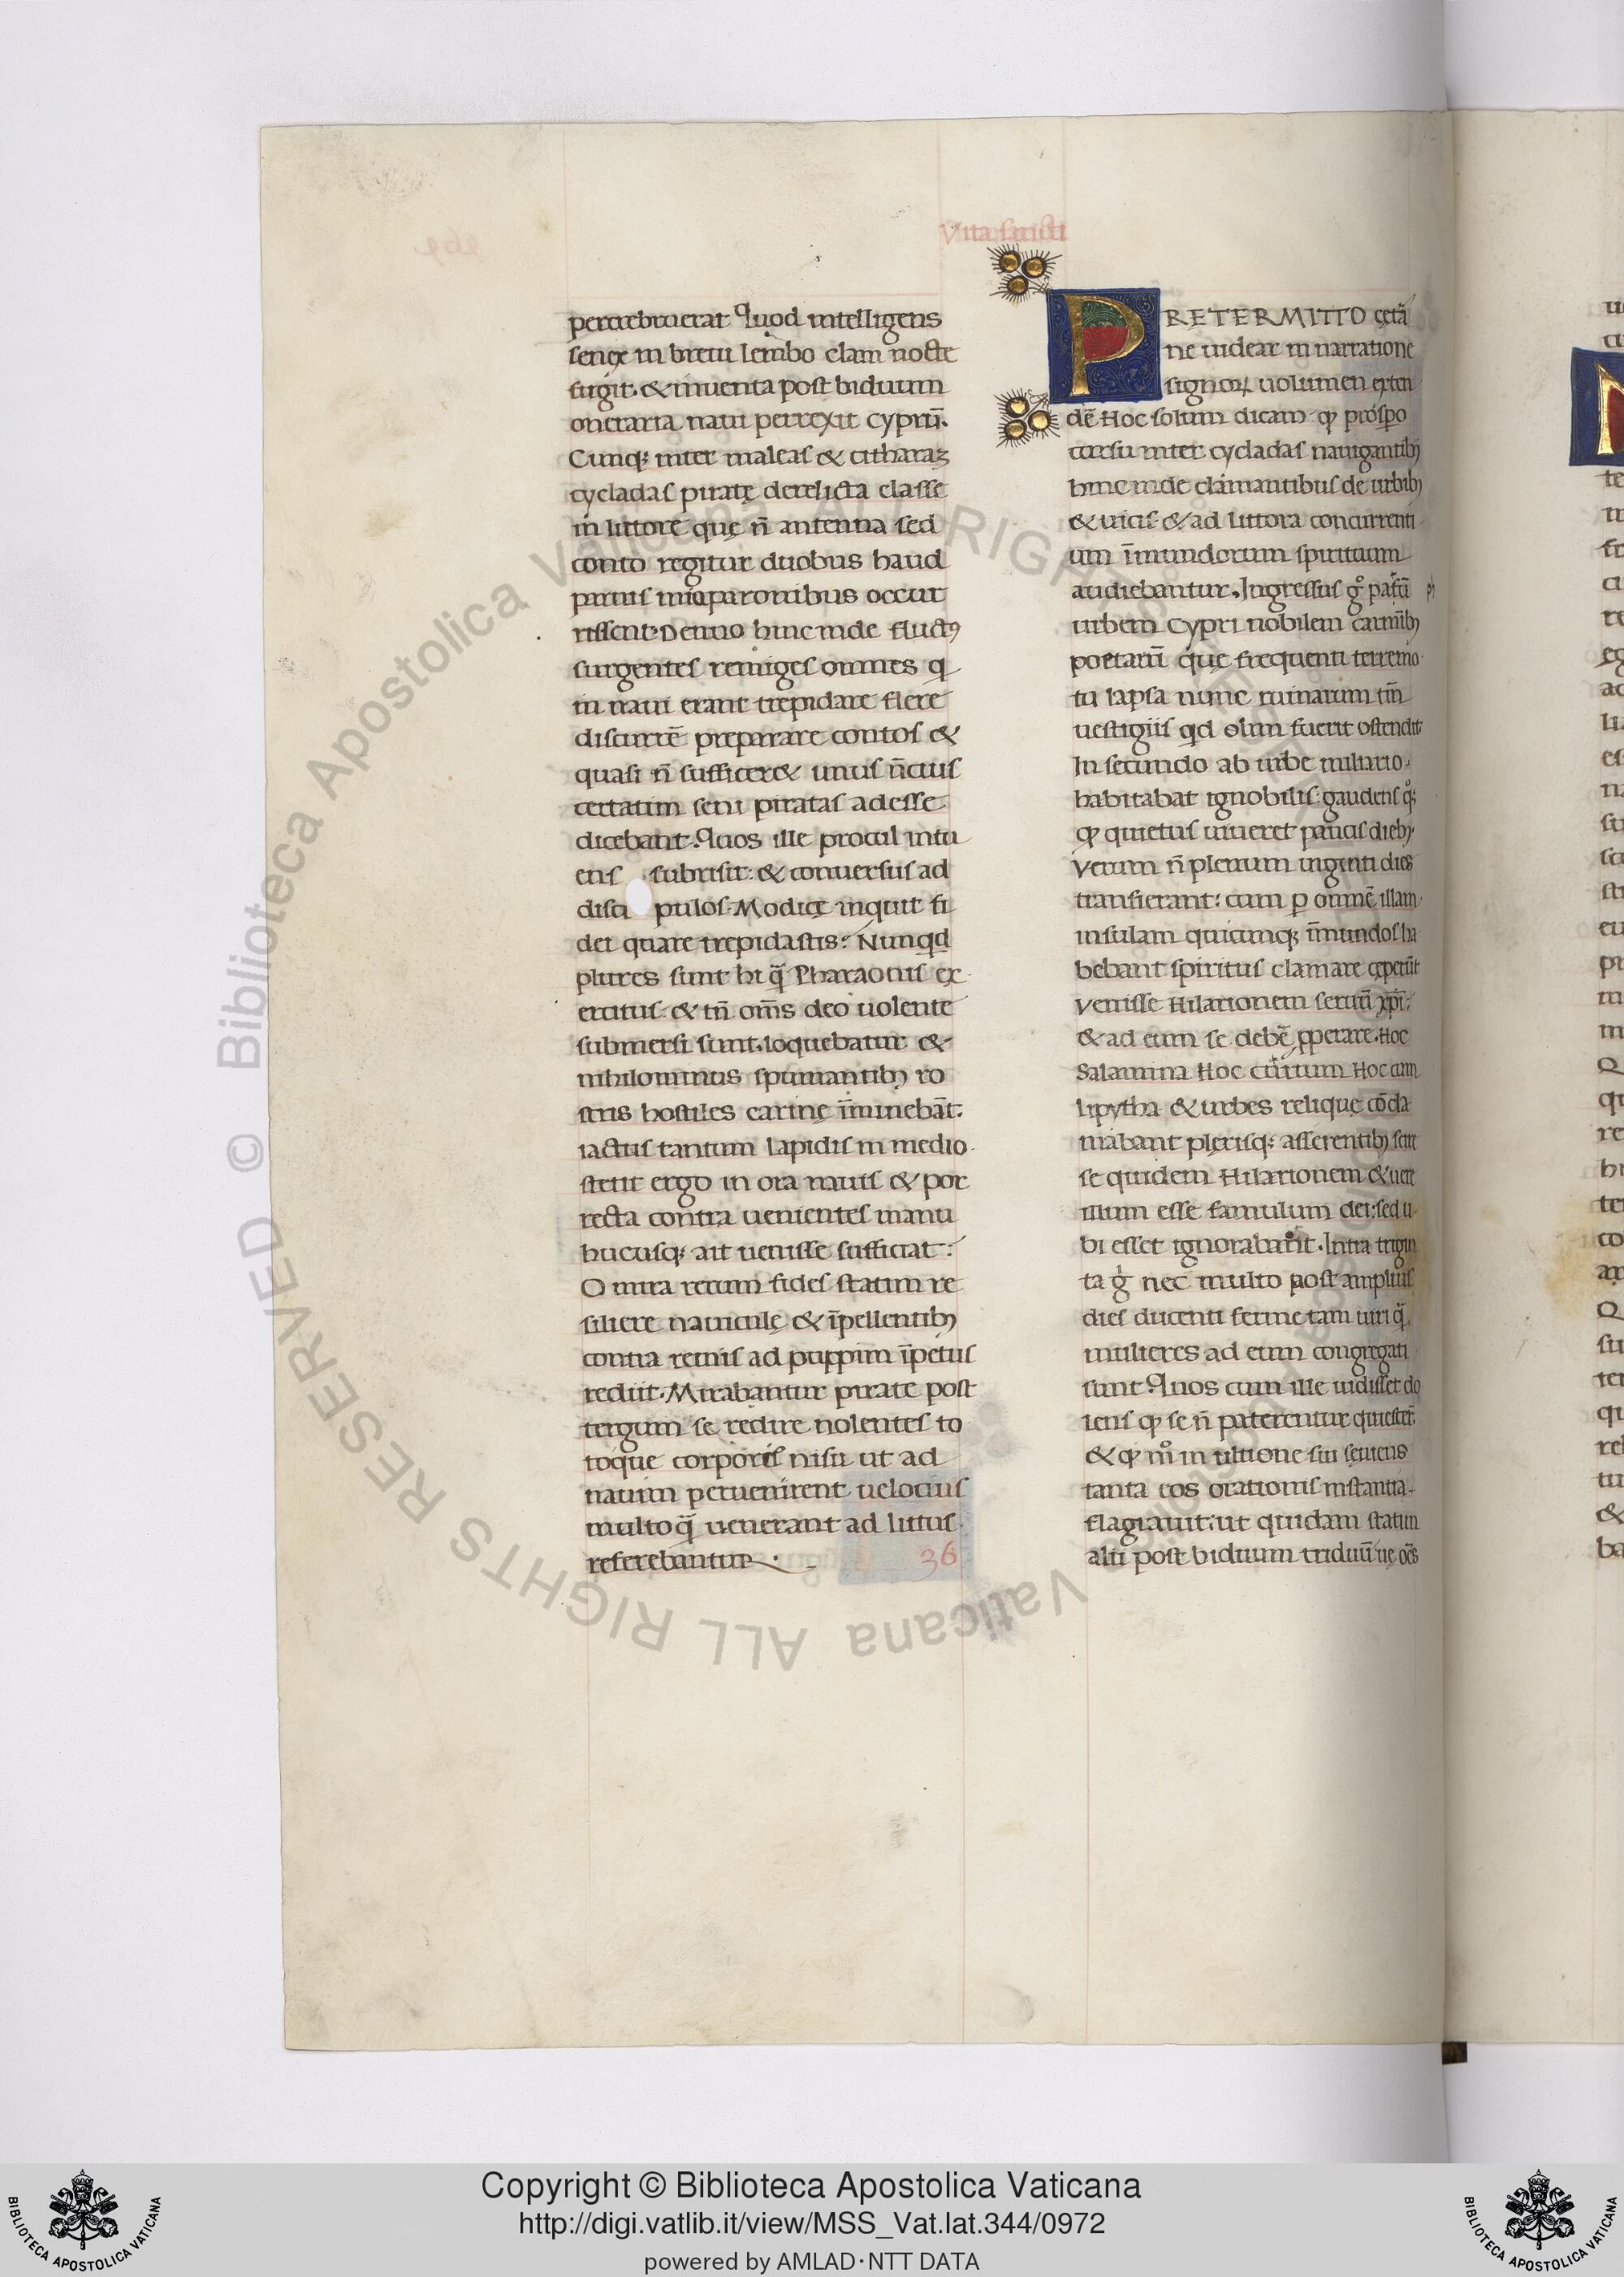 Vita sancti
percrebruerat Quod intelligens
senex in breui lembo clam nocte
fugit. & inuenta post biduum
oneraria naui perrexit cyprū.
Cunq; inter maleas & citharaz
cycladas piratę derelicta classe
in littore que n̄ antenna sed
conto regitur duobus haud
paruis mioparonibus occur
rissent. Denuo hinc inde fluct9
surgentes remiges omnes q
in naui erant trepidare flere
discurrē preparare contos &
quasi n̄ sufficer& unus n̄cius
certatim seni piratas adesse
dicebant. Quos ille procul intu
ens subrisit: & conuersus ad
disci pulos. Modicę inquit fi
dei quare trepidastis? Nunqd
plures sunt hi q̄ Pharaonis ex
ercitus. & tn̄ om̄s deo uolente
submersi sunt. loquebatur &
nihilominus spumantib; ro
stris hostiles carinę īminebāt.
iactus tantum lapidis in medio.
stetit ergo in ora nauis & por
recta contra uenientes manu
hucusq; ait uenisse sufficiat:
O mira rerum fides statim re
siliere nauiculę & īpellentib;
contra remis ad puppim īpetus
rediit. Mirabantur pirate post
tergum se redire nolentes to
toque corporis nisu ut ad
nauim peruenirent uelocius
multo q̄ uenerant ad littus
referebantur.
36
PRETERMITTO cętā
ne uidear in narratione
signoꝝ uolumen exten
dē Hoc solum dicam qp prospo
cursu inter cycladas nauigantib;
hinc inde clamantibus de urbib;
& uicis & ad littora concurrenti
um īmundorum spirituum
audiebantur. Ingressus g° pafū
urbem Cypri nobilem carmīb;
poetarū que frequenti terremo
tu lapsa nunc ruinarum tm̄
uestigiis qd olim fuerit ostendit
In secundo ab urbe miliario.
habitabat ignobilis: gaudens q;
qp quietus uiueret paucis dieb;
Verum n̄ plenum uiginti dies
transierant: cum p omnē illam
insulam quicunq; īmundos ha
bebant spiritus clamare cęperūt
venisse Hilarionem seruū xp̄i:
& ad eum se debē pperare. Hoc
Salamina Hoc curium Hoc cum
lipytha & urbes relique cōcla
mabant plerisq; asserentib; scire
se quidem Hilarionem & uere
illum esse famulum dei: sed u
bi esset ignorabant. Intra trigin
ta g nec multo post amplius
dies ducenti ferme tam uiri q̄
mulieres ad eum congregati
sunt Quos cum ille uidisset do
lens qp se n̄ paterentur quiescē
& qp m° in ultione sui sęuiens
tanta eos orationis instantia
flagrauit: ut quidam statim
alii post biduum triduū uę om̄s
http://digi.vatlib.it/view/MSS_Vat.lat.344/0972
Copyright © Biblioteca Apostolica Vaticana
powered by AMLAD·NTT DATA
© Biblioteca Apostolica Vaticana ALL RIGHTS RESERVED
BIBLIOTECA APOSTOLICA VATICANA
BIBLIOTECA APOSTOLICA VATICANA